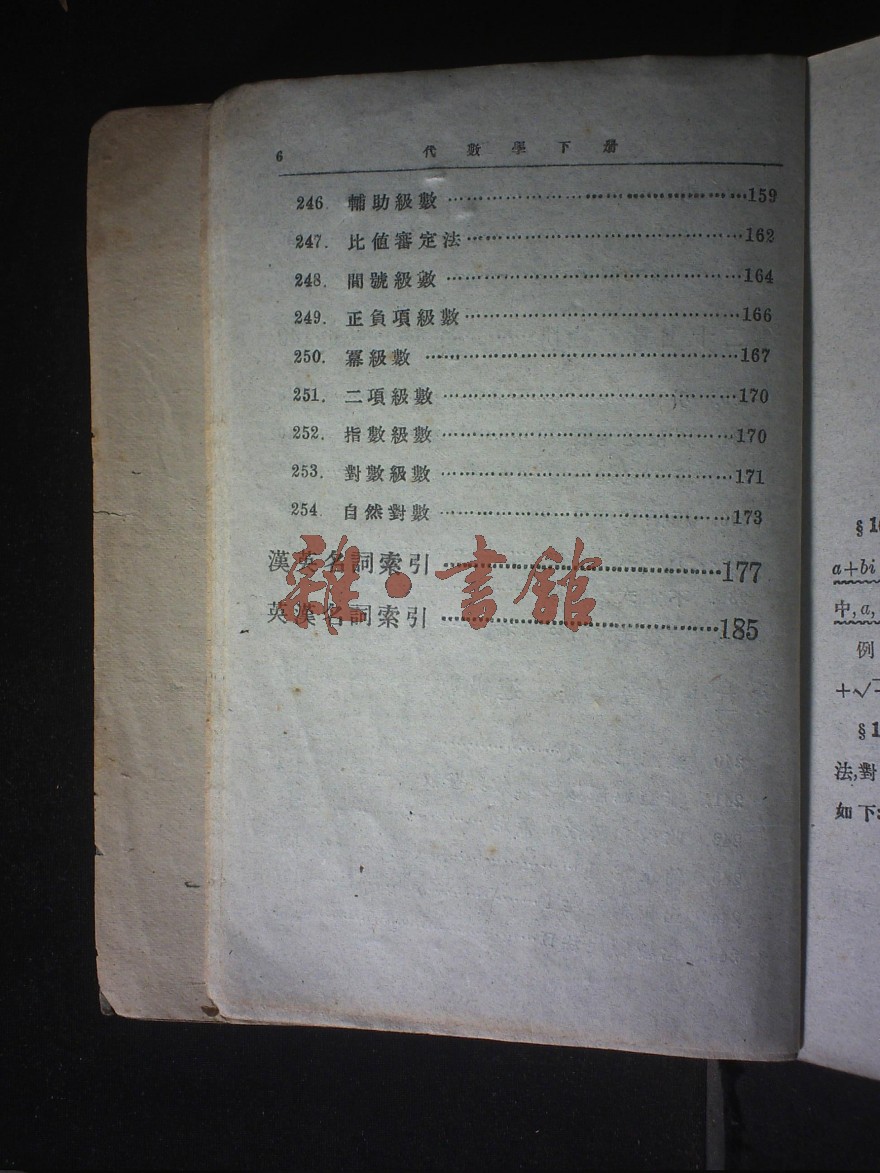 6 代數學下册
246 輔助級數 159
247. 比値審定法 162
248. 間號級數 164
249. 正負項級數 166
250. 冪級數 167
251. 二項級數 170
252. 指數級數 170
253. 對數級數 171
254 自然對數 173
漢英名詞索引 177
英漢名詞索引 185
雜·書館
a+bi
中,a,
例
+√
法,對
如下: